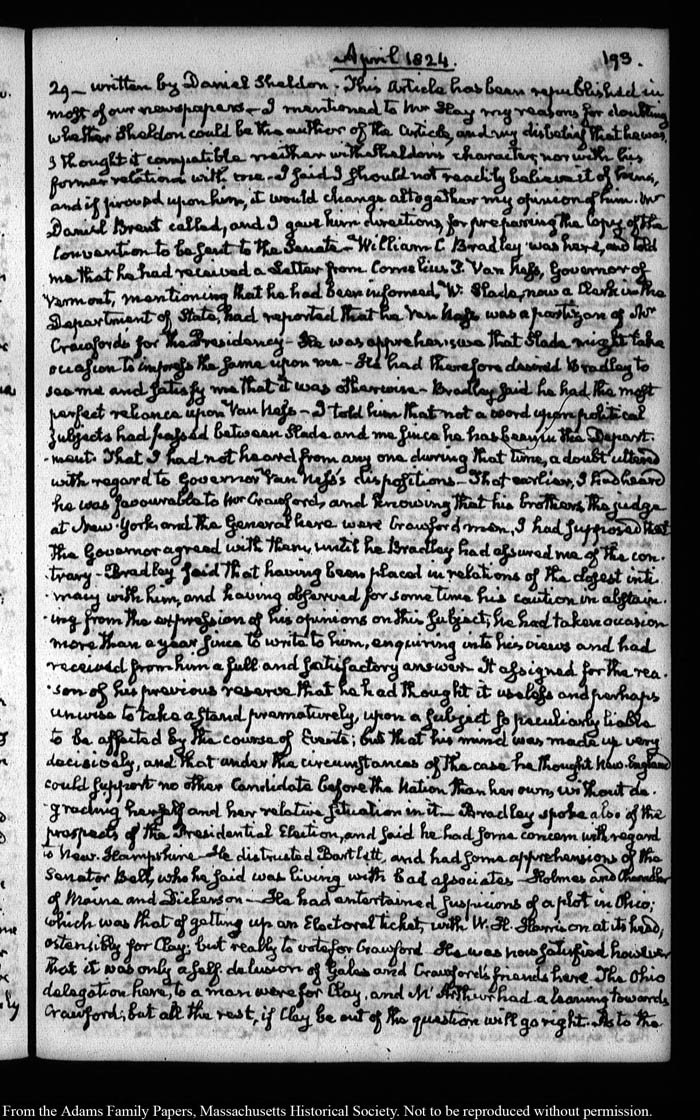 April 1824. 193.
29 — written by Daniel Sheldon. This Article has been republished in
most of our newspapers — I mentioned to Mr Hay my reasons for doubting
whether Sheldon could be the author of the Article, and my disbelief that he was,
I thought it compatible neither with Sheldon's character, nor with his
former relations with me. I said I should not readily believe it of him,
and if proved upon him, it would change altogether my opinion of him. Mr
Daniel Brent called, and I gave him directions, for preparing the Copy of the
Convention to be sent to the Senate — William C Bradley was here, and told
me that he had received a Letter from Cornelius P. Van Ness, Governor of
Vermont, mentioning that he had been informed, W. Slade, now a Clerk in the
Department of State, had reported that he Van Ness was a partizan of Mr
Crawford's for the Presidency — He was apprehensive that Slade might take
occasion to impress the same upon me — He had therefore desired Bradley to
see me and satisfy me that it was otherwise — Bradley said he had the most
perfect reliance upon Van Ness — I told him that not a word upon political
subjects had passed between Slade and me since he has been in the Depart-
-ment. That I had not heard from any one during that time, a doubt uttered
with regard to Governor Van Ness's dispositions — That earlier, I had heard
he was favourable to Mr Crawford, and knowing that his brothers, the judge
at New-York, and the General here were Crawford men, I had supposed that
the Governor agreed with them, until he Bradley had assured me of the con-
trary — Bradley said that having been placed in relations of the closest inti-
-macy with him, and having observed for some time his caution in abstain-
-ing from the expression of his opinions on this subject, he had taken occasion
more than a year since to write to him, enquiring into his views and had
received from him a full and satisfactory answer. It assigned for the rea-
-son of his previous reserve that he had thought it useless and perhaps
unwise to take a stand prematurely, upon a subject so peculiarly liable
to be affected by the course of Events; but that his mind was made up very
decisively, and that under the circumstances of the case he thought New-England
could support no other Candidate before the Nation than her own, without de-
-grading herself and her relative situation in it — Bradley spoke also of the
prospects of the Presidential Election, and said he had some concern with regard
to New-Hampshire — He distrusted Bartlett, and had some apprehensions of the
Senator Bell, who he said was living with bad associates — Holmes and Chandler
of Maine and Dickerson — He had entertained suspicions of a plot in Ohio;
which was that of getting up an Electoral ticket, with W. H. Harrison at its head,
ostensibly for Clay; but really to vote for Crawford. He was now satisfied however
that it was only a self-delusion of Gales and Crawford's friends here. The Ohio
delegation here, to a man were for Clay, and McArthur had a leaning towards
Crawford; but all the rest, if Clay be out of the question will go right. As to the
From the Adams Family Papers, Massachusetts Historical Society. Not to be reproduced without permission.